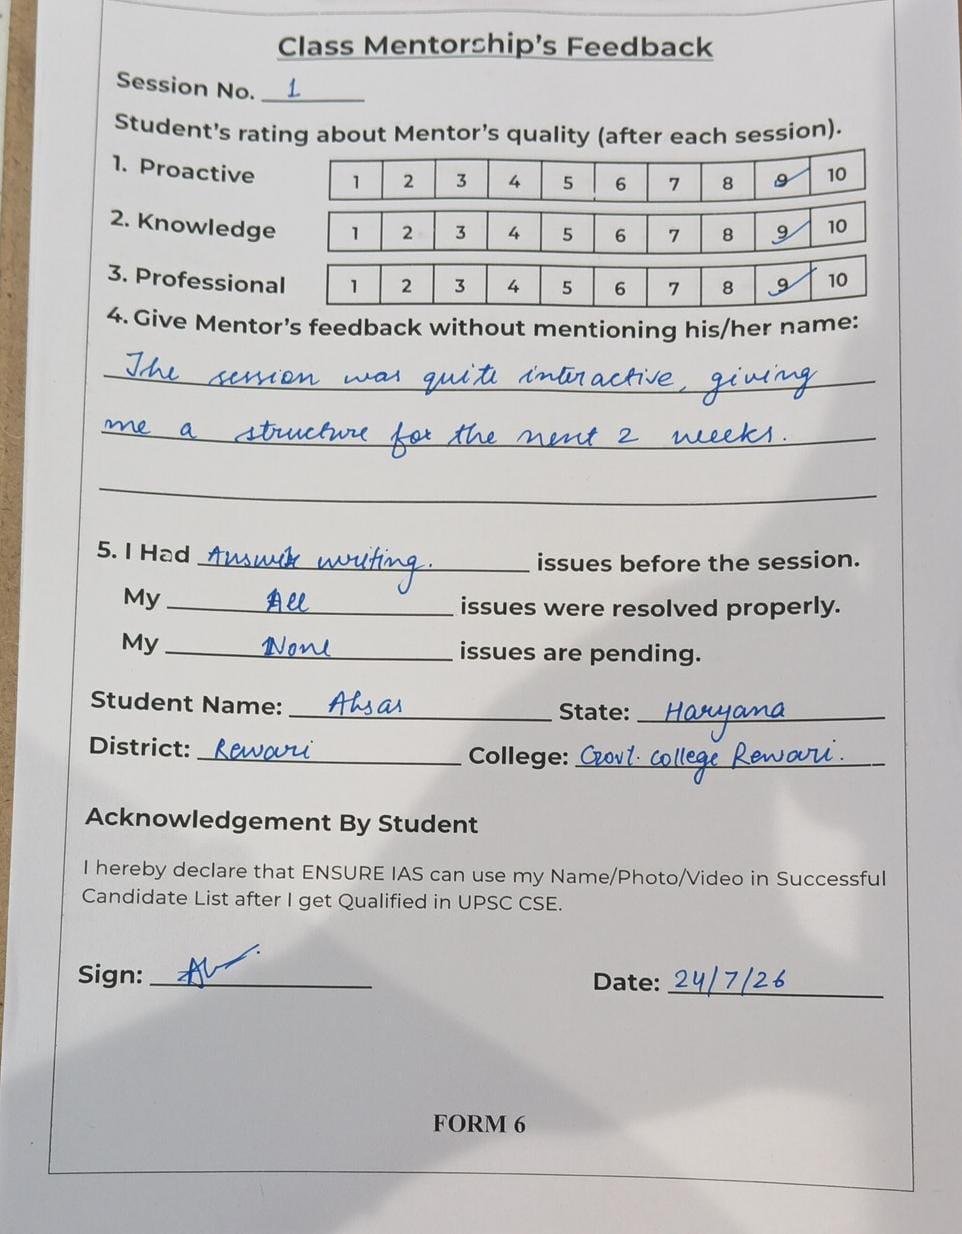 Class Mentorship's Feedback
Session No. 1
Student's rating about Mentor's quality (after each session).
1. Proactive 1 2 3 4 5 6 7 8 9 10
2. Knowledge 1 2 3 4 5 6 7 8 9 10
3. Professional 1 2 3 4 5 6 7 8 9 10
4. Give Mentor's feedback without mentioning his/her name:
The session was quite interactive, giving
me a structure for the next 2 weeks.
5. I Had Answer writing. issues before the session.
My All issues were resolved properly.
My None issues are pending.
Student Name: Ahsas State: Haryana
District: Rewari College: Govt. college Rewari.
Acknowledgement By Student
I hereby declare that ENSURE IAS can use my Name/Photo/Video in Successful
Candidate List after I get Qualified in UPSC CSE.
Sign: Date: 24/7/26
FORM 6